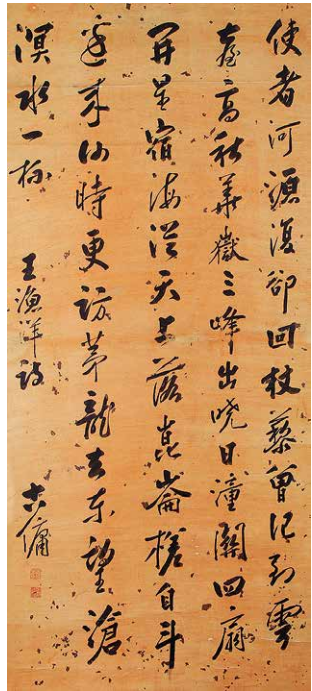 使者河源復卻回杖藜曾記到雲
臺高秋華嶽三峰出曉日潼關四扇
開星宿海從天上落崑崙槎自斗
邊來何時更訪茅龍去東望滄
溟水一杯
王漁洋詩